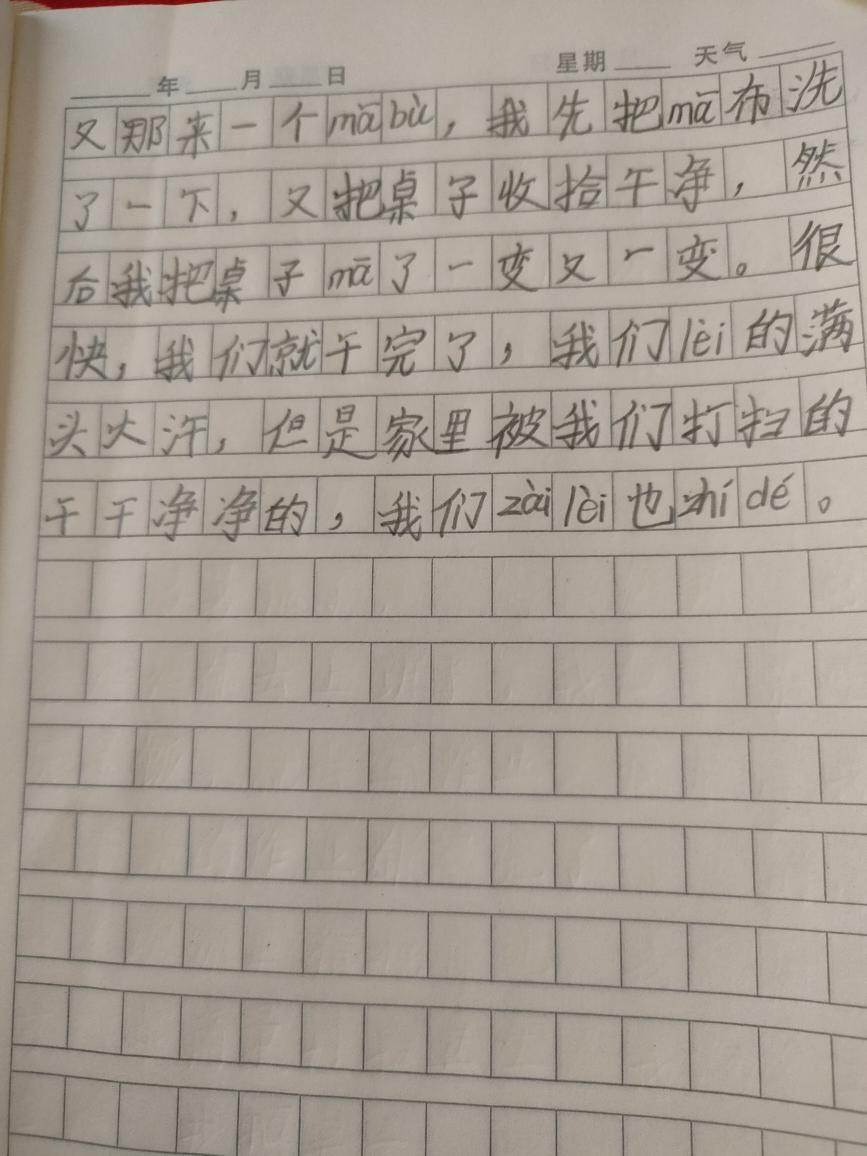 年 月 日 星期 天气
又那来一个mābù，我先把mā布洗
了一下，又把桌子收拾干净，然
后我把桌子mā了一变又一变。很
快，我们就干完了，我们lèi的满
头大汗，但是家里被我们打扫的
干干净净的，我们zài lèi也zhí dé。